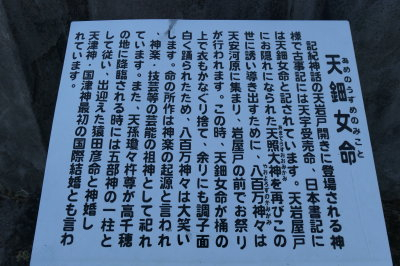 天鈿女命
あめのうずめのみこと
記紀神話の天岩戸開きに登場される神
様で古事記には天宇受売命、日本書記に
は天鈿女命と記されています。天岩屋戸
にお隠れになられた天照大神を再びこの
世に誘い導き出すために、八百万神々は
天安河原に集まり、岩屋戸の前でお祭り
が行われます。この時、天鈿女命が桶の
上で衣もかなぐり捨て、余りにも調子面
白く踊られたため、八百万神々は大笑い
します。命の所作は神楽の起源と言われ
神楽・技芸等の芸能の祖神として祀れ
ています。また、天孫瓊々杵尊が高千穂
の地に降臨される時には五部神の一柱と
して従い、出迎えた猿田彦命と神婚し
天津神・国津神最初の国際結婚とも言わ
れています。